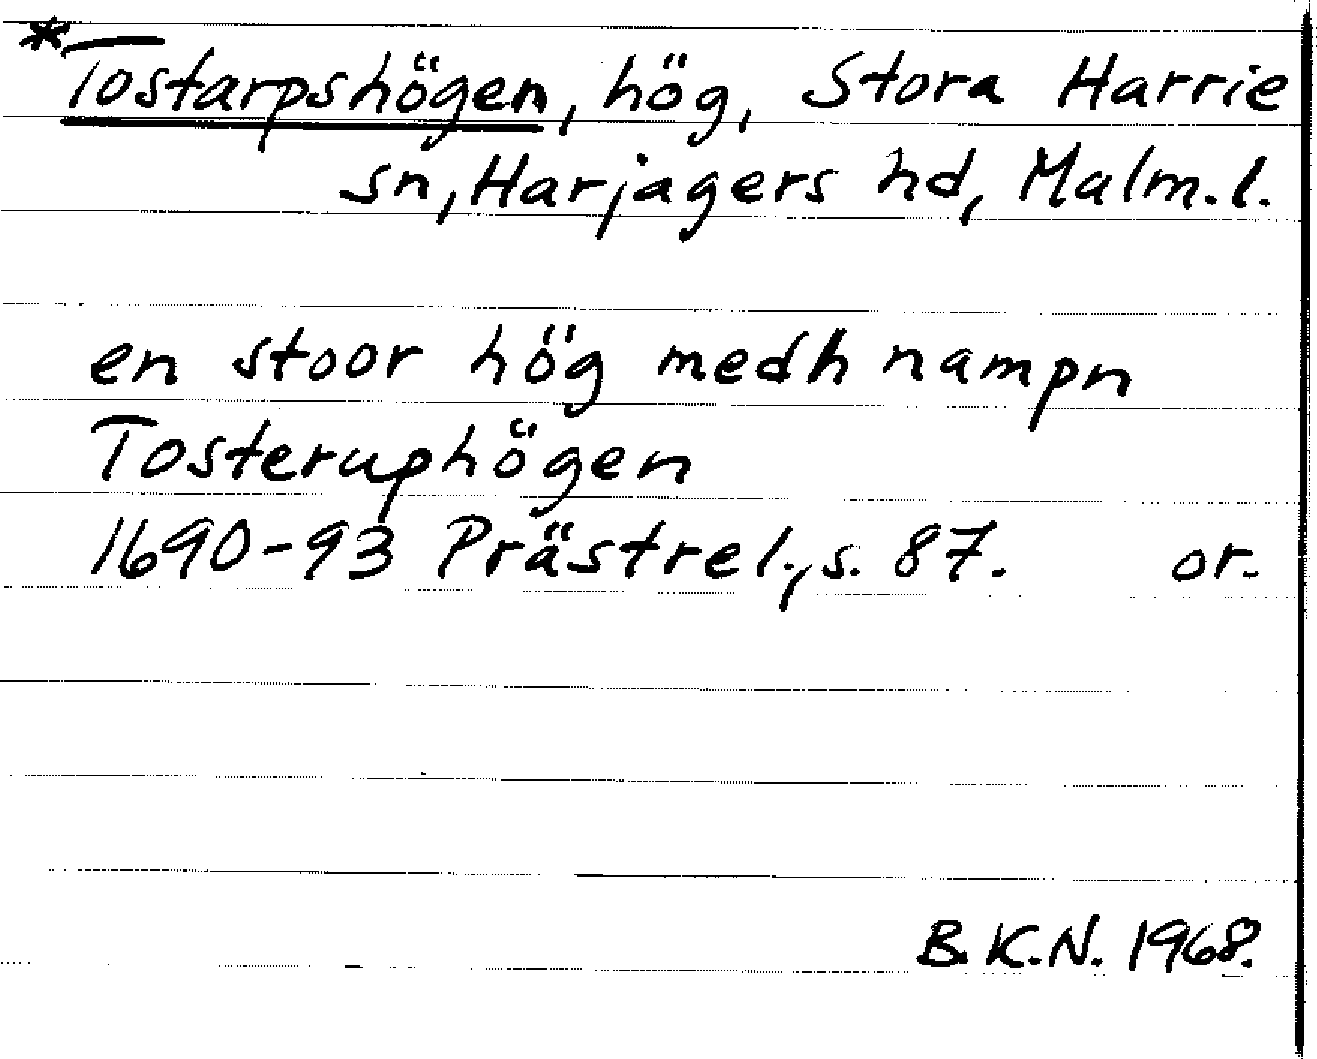 *Tostarpshögen, hög, Stora Harrie
sn, Harjagers hd, Malm.l.
en stoor hög medh nampn
Tosteruphögen
1690-93 Prästrel., s. 87. or.
B.K.N. 1968.